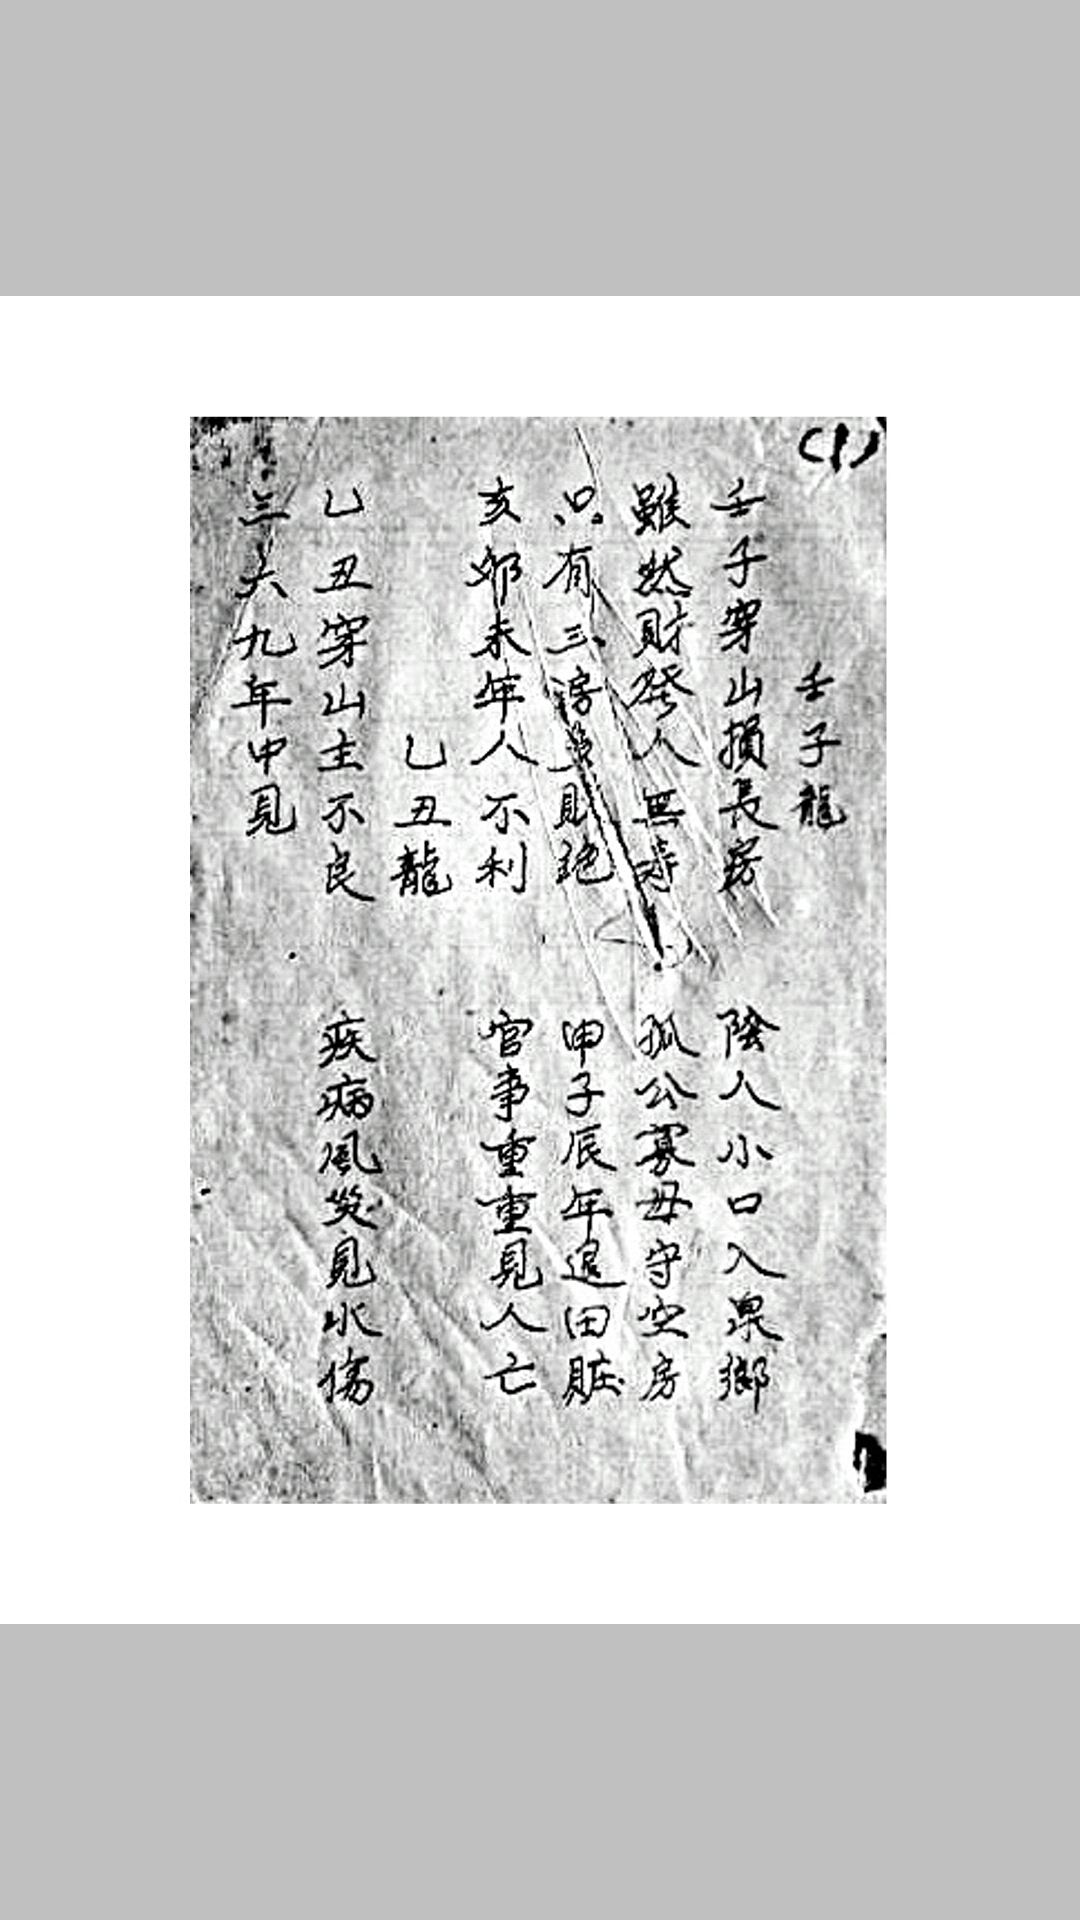 (1)
壬子龍
壬子穿山損長房 陰人小口入泉鄉
雖然財發人無壽 孤公寡母守空房
只有三房 財絕 申子辰年退田賍
亥卯未年人不利 官事重重見人亡
乙丑龍
乙丑穿山主不良 疾病風災見水傷
三六九年中見